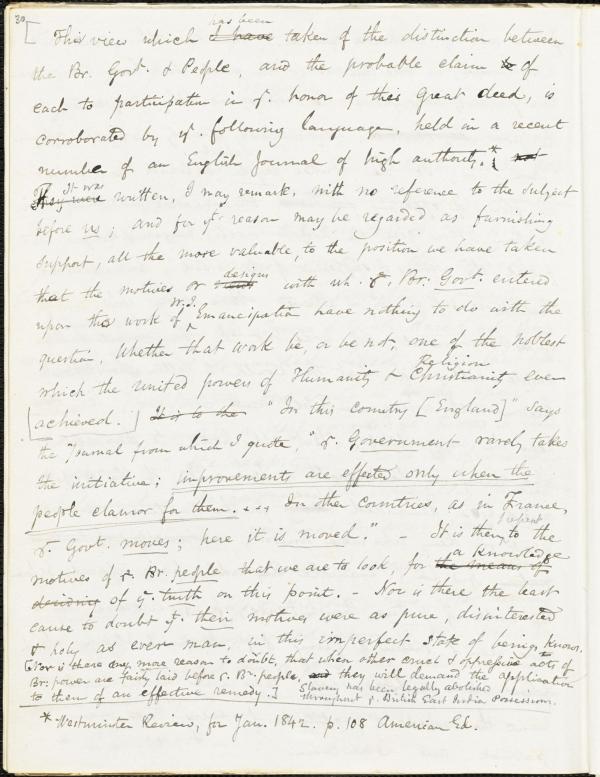 30
has been
[ This view which I have taken of the distinction between
the Br. Govt. & People, and the probable claim to of
each to participation in ye. honor of this great deed, is
corroborated by ye. following language, held in a recent
number of an English Journal of high authority.*
It was
They were written, I may remark, with no reference to the subject
before us; and for yt. reason may be regarded as furnishing
support, all the more valuable, to the position we have taken
designs
that the motives or with wh. ye. Br: Govt. entered
W. I.
upon this work of Emancipation have nothing to do with the
question, Whether that work be, or be not, one of the noblest
Religion
which the united powers of Humanity & Christianity ever
achieved. It is to the "In this country [England]" says
the Journal from which I quote, "ye. Government rarely takes
the initiative; improvements are effected only when the
people clamor for them. * * * In other countries, as in France,
ye. Govt. moves; here it is moved." - It is then,
I repeat
to the
a knowledge
motives of ye. Br. people that we are to look, for the means of
deciding of ye. truth on this point. - Nor is there the least
cause to doubt yt. their motives were as pure, disinterested
& holy as ever man, in this imperfect state of being, knows.
[Nor is there any more reason to doubt, that when other cruel & oppressive acts of
Br: power are fairly laid before ye. Br. people, and they will demand the application
to them of an effective remedy.]
Slavery has been legally abolished
throughout ye. British East India possessions.
* Westminster Review, for Jan. 1842. p. 108 American Ed.